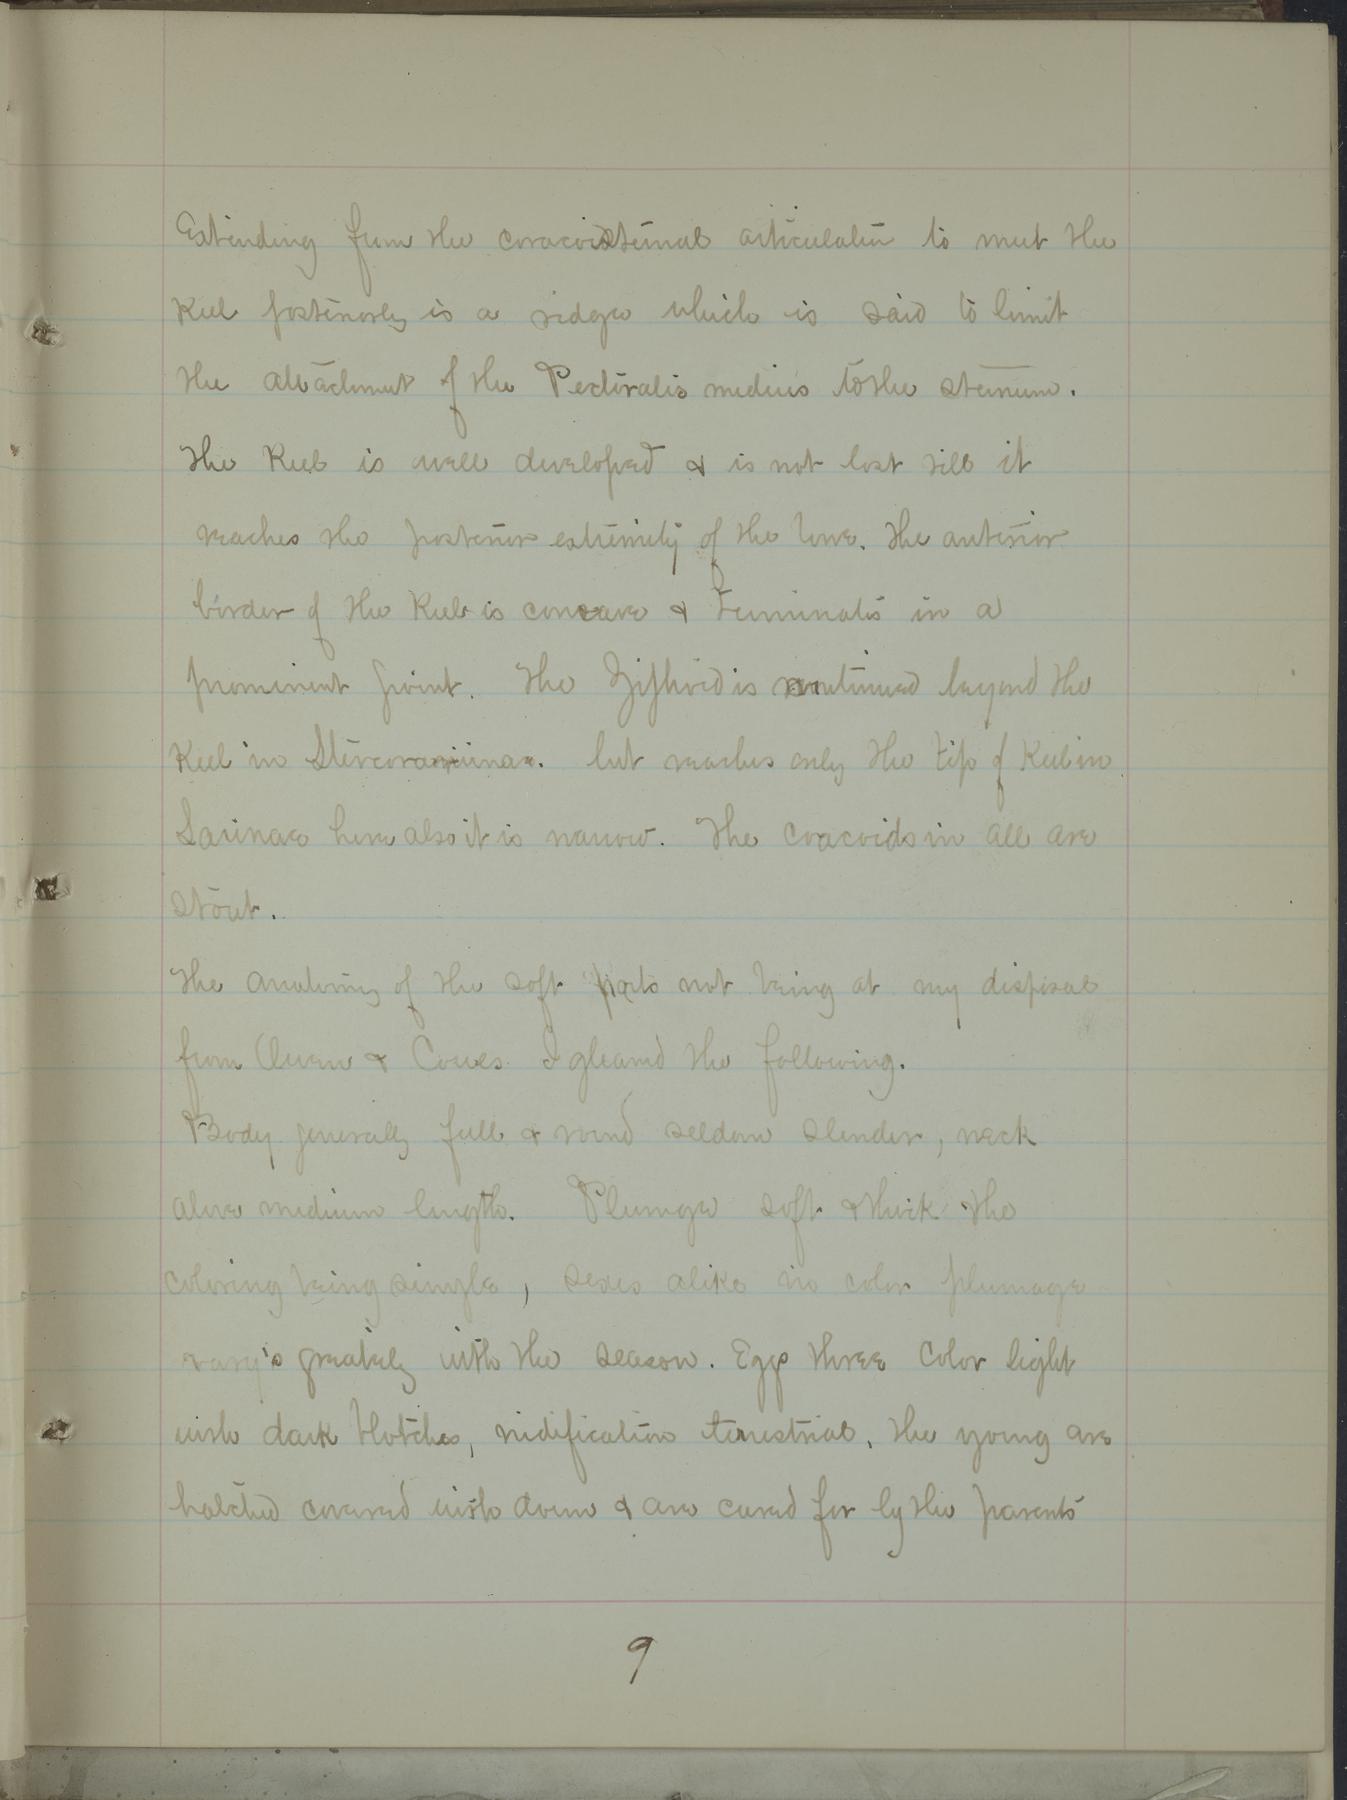 Extending from the coracoidsternal articulation to meet the
Keel posteriorly is a ridge which is said to limit
the attachment of the Pectoralis medius to the sternum.
The Keel is well developed & is not lost till it
reaches the posterior extremity of the bone. The anterior
border of the Keel is concave & terminates in a
prominent point. The Ziphoid is continued beyond the
Keel in Stercorariinae. but reaches only the tip of Keel in
Larinae here also it is narrow. The coracoids in all are
stout.
The anatomy of the soft parts not being at my disposal
from Owen & Coues I gleamd the following.
Body generally full & round seldom slender, neck
above medium length. Plumage soft & thick the
coloring being simple, sexes alike in color plumage
vary's greately with the season. Eggs three color light
with dark blotches, nidification terrestrial. The young are
hatched covered with down & are cared for by the parents
9